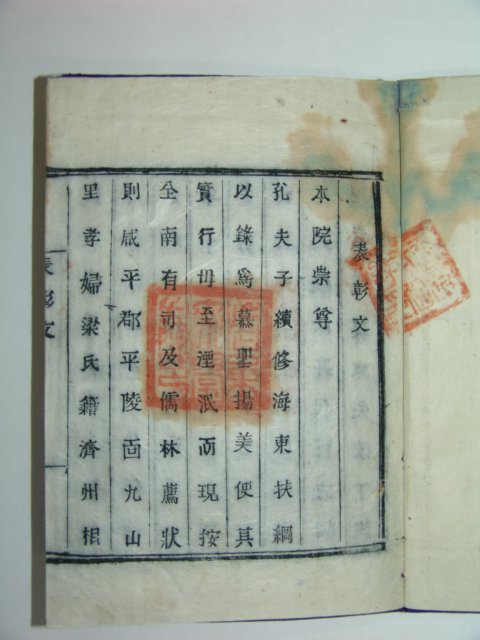 表彰文
本院崇尊
孔夫子續修海東扶綱
以錄爲慕聖揚美使其
實行毋至湮泯而現按
全南有司及儒林薦狀
則咸平郡平陵面九山
里孝婦梁氏籍濟州相
表彰文